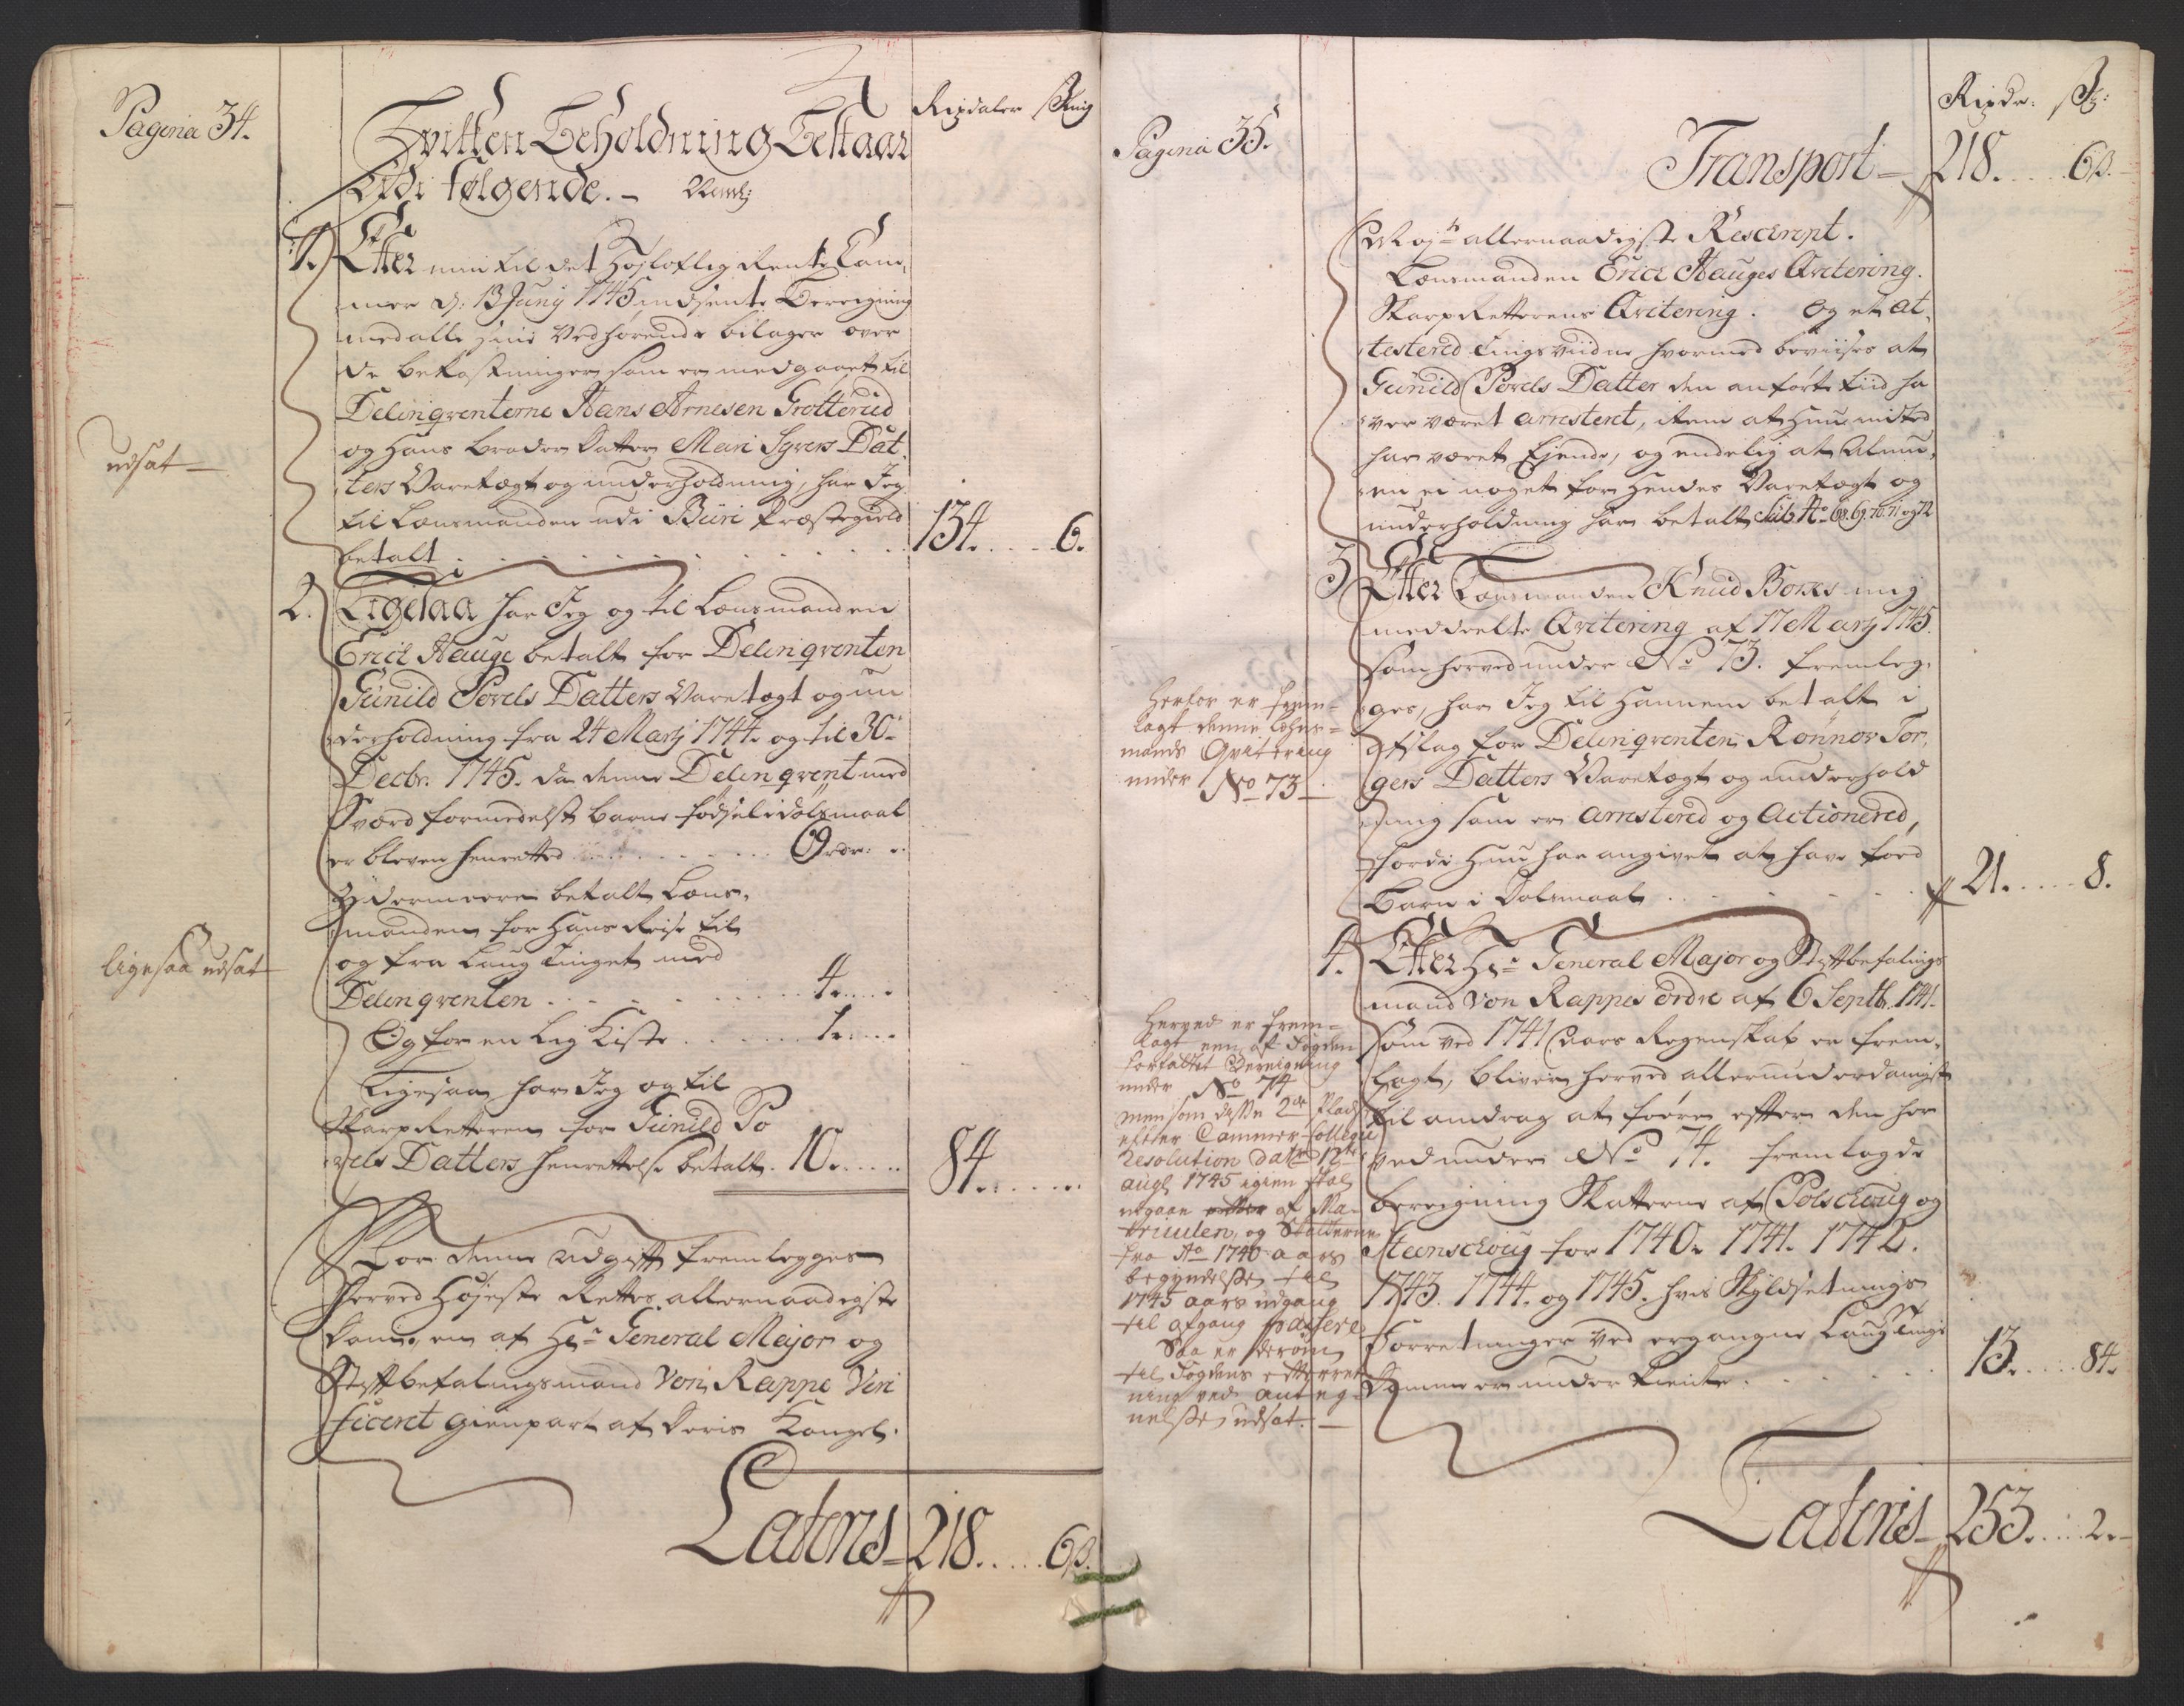 Pagina 34.
Rixdaler
Beholdning
Udi følgende. -
1. Efter min til det Højloflig Rente Cam,
mer d: 13 Junij 1745 indsente Beregning
med alle sine Vedhørende bilager over
de bekostninger som er medgaaet til
Delinqventerne Hans Arnesen Grotterud
og hans broder datter Mari Syvers Dat,
ters Varetægt og underholdning, har Jeg
til Lensmanden udi Præstegield
betalt . . . . . 134. . . . 6.
udsat -
2. Ligesaa har Jeg og til Lensmanden
Erich Hauge betalt for Delinqventen
Gunild Povels Datters Varetægt og un
derholdning fra 24 Martj 1744. og til 30te
Decbr. 1745. da denne Delinqvent med
Sværd formedelst barne fødsel i dølgsmaal
er bleven henrettet . . . . 69 rdr:
Ydermeere betalt Lens,
manden for hans Reise til
og fra Laug Tinget med
Delinqventen . . . . 4. . . .
Og for en Lig Kiste . . . . 1. . . .
ligesaa udsat
Ligesaa har Jeg og til
Skarp Retteren for Gunild Po
vels Datters henrettelse betalt. 10. . . . 84. . . .
For denne udgift fremlegges
herved Højeste Rettes allernaadigste
dom, en af Hr. General Major og
Stiftbefalingsmand Von Rappe Veri
ficeret gienpart af deris Kongel.
Lateris - 218. . . . 6 ß.
Pagina 35.
Rixdr: ß:
Transport - 218. . . . 6 ß.
Mayts allernaadigste Rescript.
Lensmanden Erich Hauges Qvitering.
Skarp Retterens Qvitering. Og et at,
testered Tings vidne hvormed beviises at
Gunild Povels Datter den anførte tiid ha
ver været arresteret, item at hun intet
har været Ejende, og endelig at Almu,
en ei noget for hendes Varetægt og
underholdning har betalt Sub No 68. 69. 70. 71 og 72
3 Efter Lensmanden Knud mig
meddeelte Qvitering af 17 Martj 1745.
som herved under No 73. fremleg,
ges, har Jeg til hannem betalt i
afslag for Delinqventen Rønnov Tor,
gers Datters Varetægt og underhold
ning som er arrestered og Actionered,
fordi hun har angivet at have fød
Barn i Dølsmaal . . . . 21. . . . 8.
Herfor er frem=
lagt denne Lehns=
mands Qvitering
under No 73
4. Efter Hr. General Major og Stiftbefalings
mand Von Rappes ordre af 6 Septb. 1741.
som ved 1741 Aars Regenskab er frem,
lagt, bliver herved allerunderdanigst
til andrag at føere efter den her
ved under No 74. fremlagde
beregning Skatterne af og
for 1740. 1741. 1742.
1743. 1744. og 1745. hvis Skyldsetnings
Forretninger ved ergangne Laugtings
Domme er under kiente . . . . 13. . . . 84.
Herved er frem=
lagt een af Fogden
forfattet Beregning
under No 74
men som disse 2de Plads
efter Cammer-Collegii
Resolution dat 12te
aug 1745 igien skal
udgaae af Ma=
triculen, og Skatterne
fra Ao 1740 aars
begyndelse til
1745 aars udgang
til afgang passere
Saa er derom
til Fogdens efterret
ning ved anteg=
nelse udsat. -
Lateris - 253. . . . 2. -